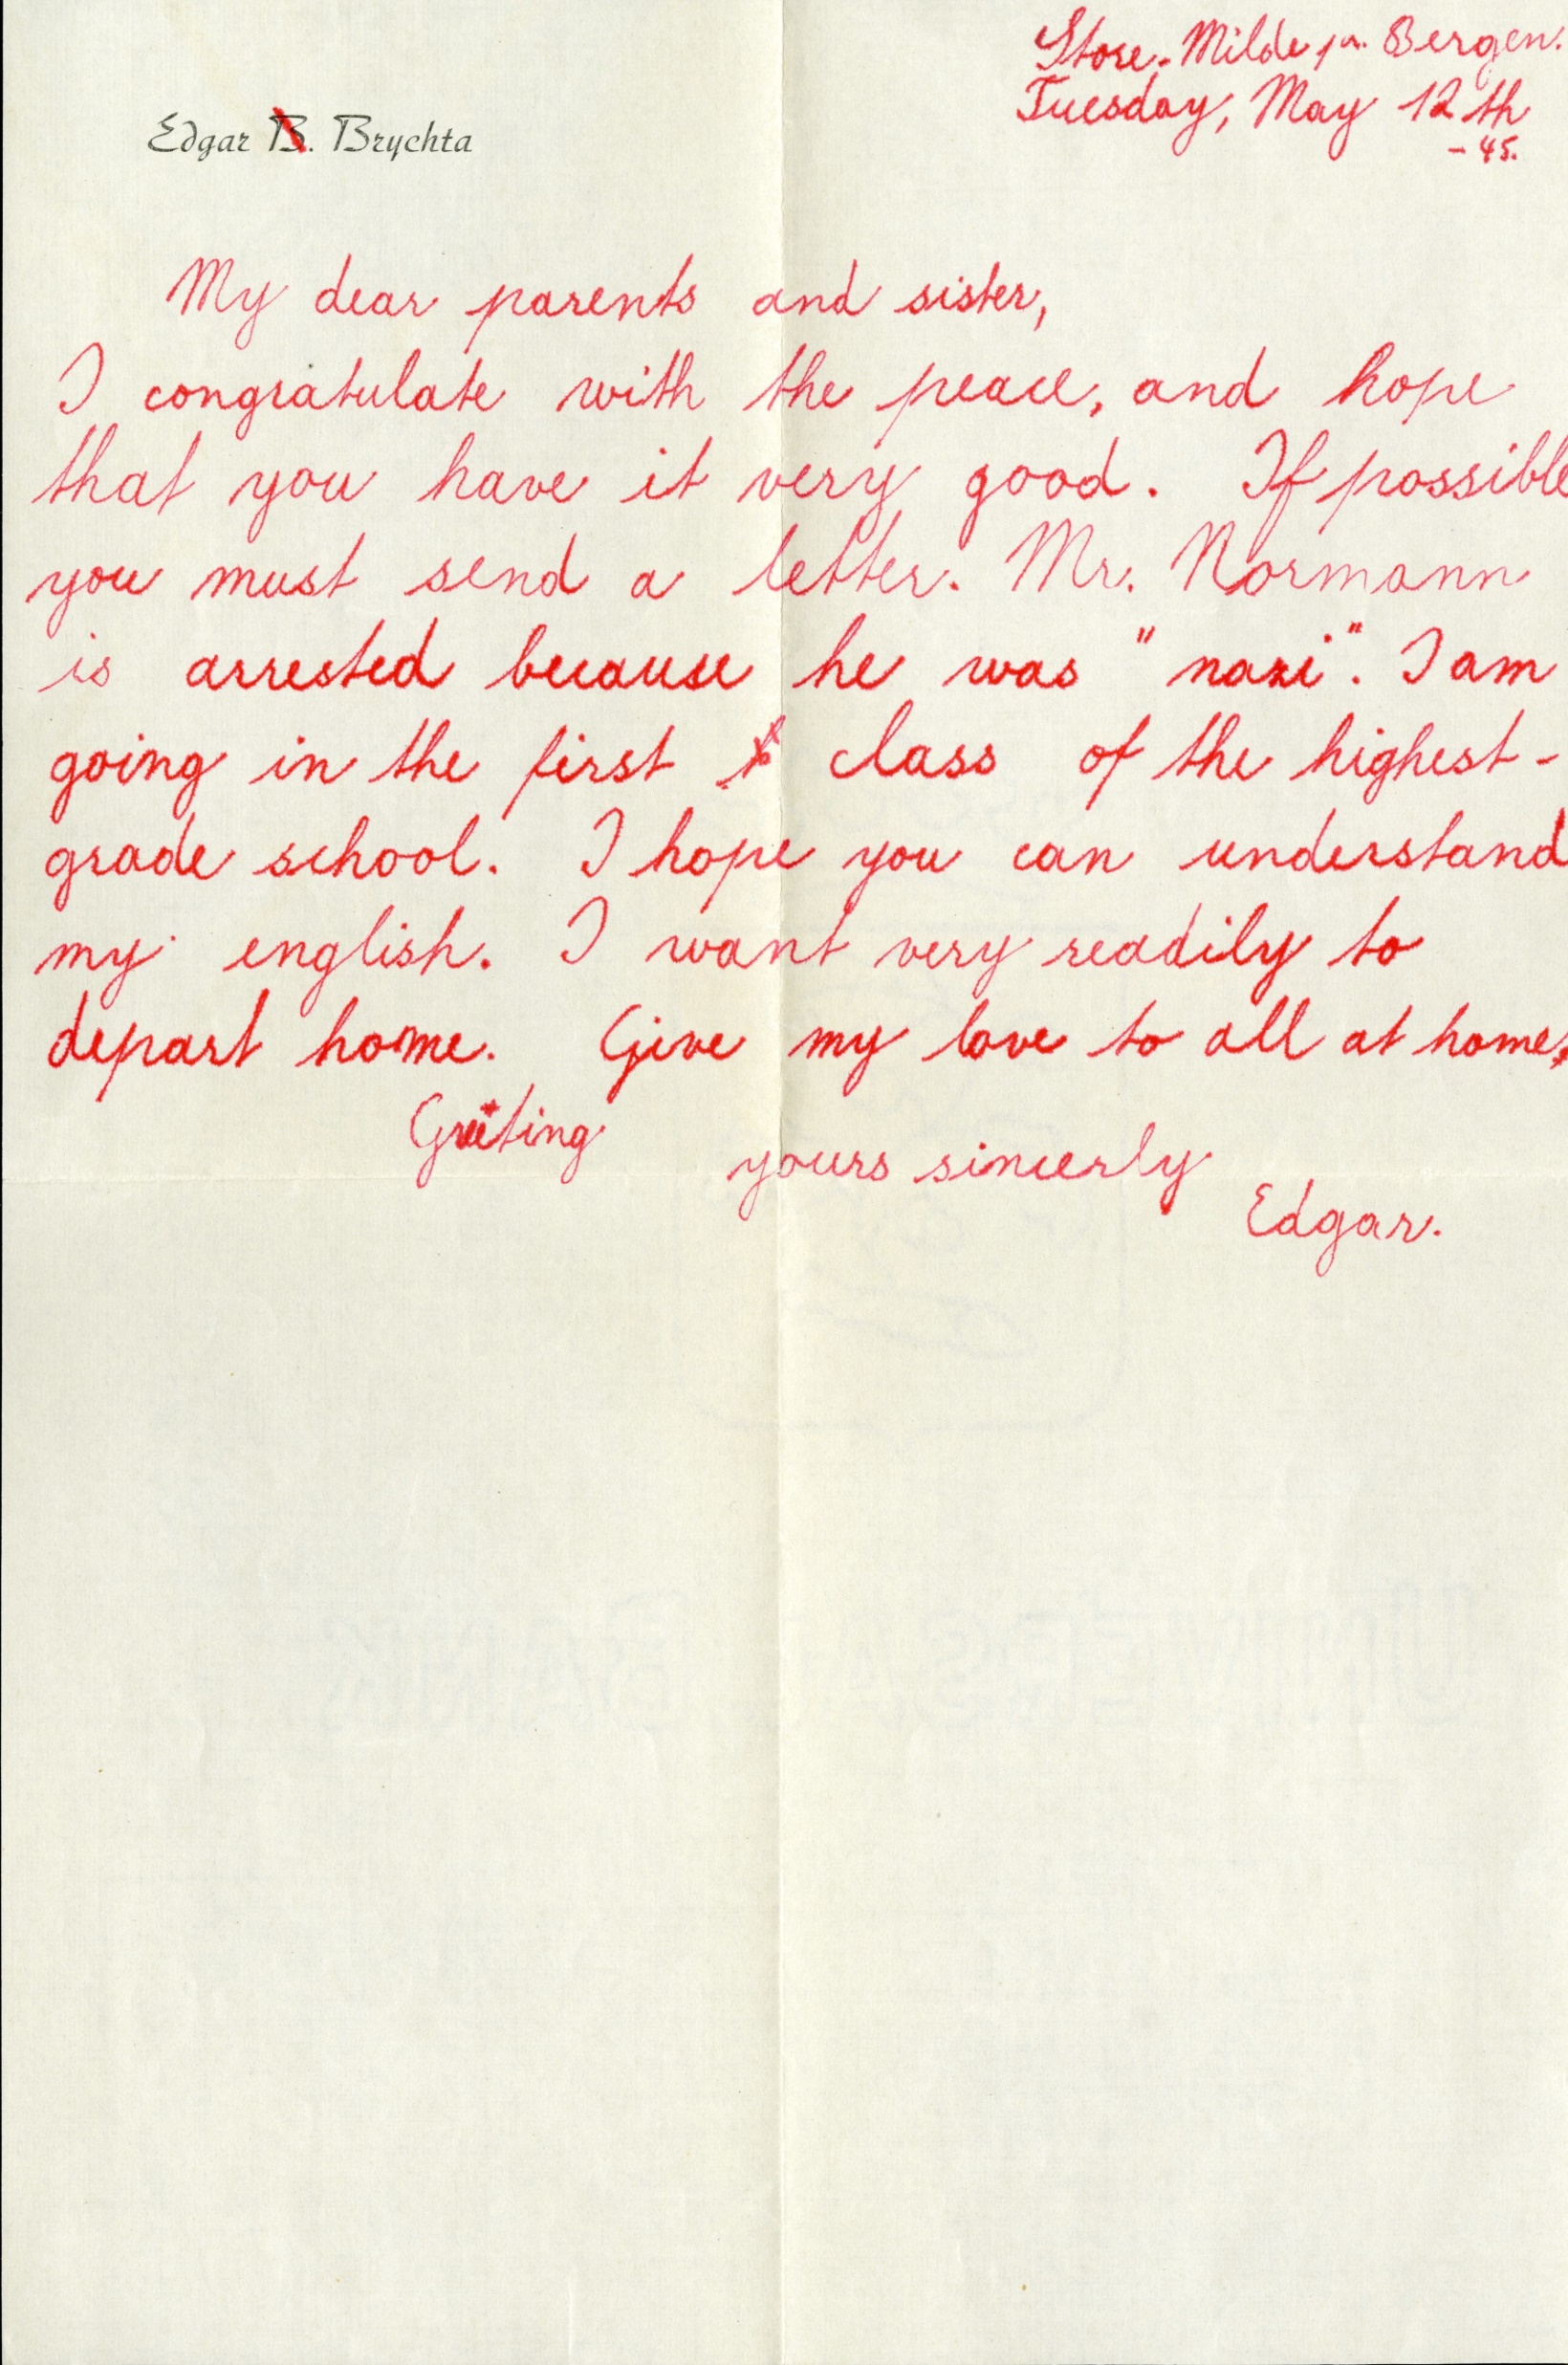 Store-Milde pr. Bergen.
Tuesday, May 12th
-45.
Edgar B. Brychta
My dear parents and sister,
I congratulate with the peace, and hope
that you have it very good. If possible
you must send a letter. Mr. Normann
is arrested because he was "nazi". I am
going in the first class of the highest-
grade school. I hope you can understand
my english. I want very readily to
depart home. Give my love to all at home.
Greeting
yours sincerly
Edgar.
UNIVERSAL BANK